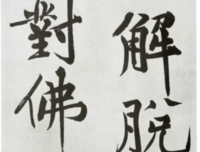 解脱
對佛